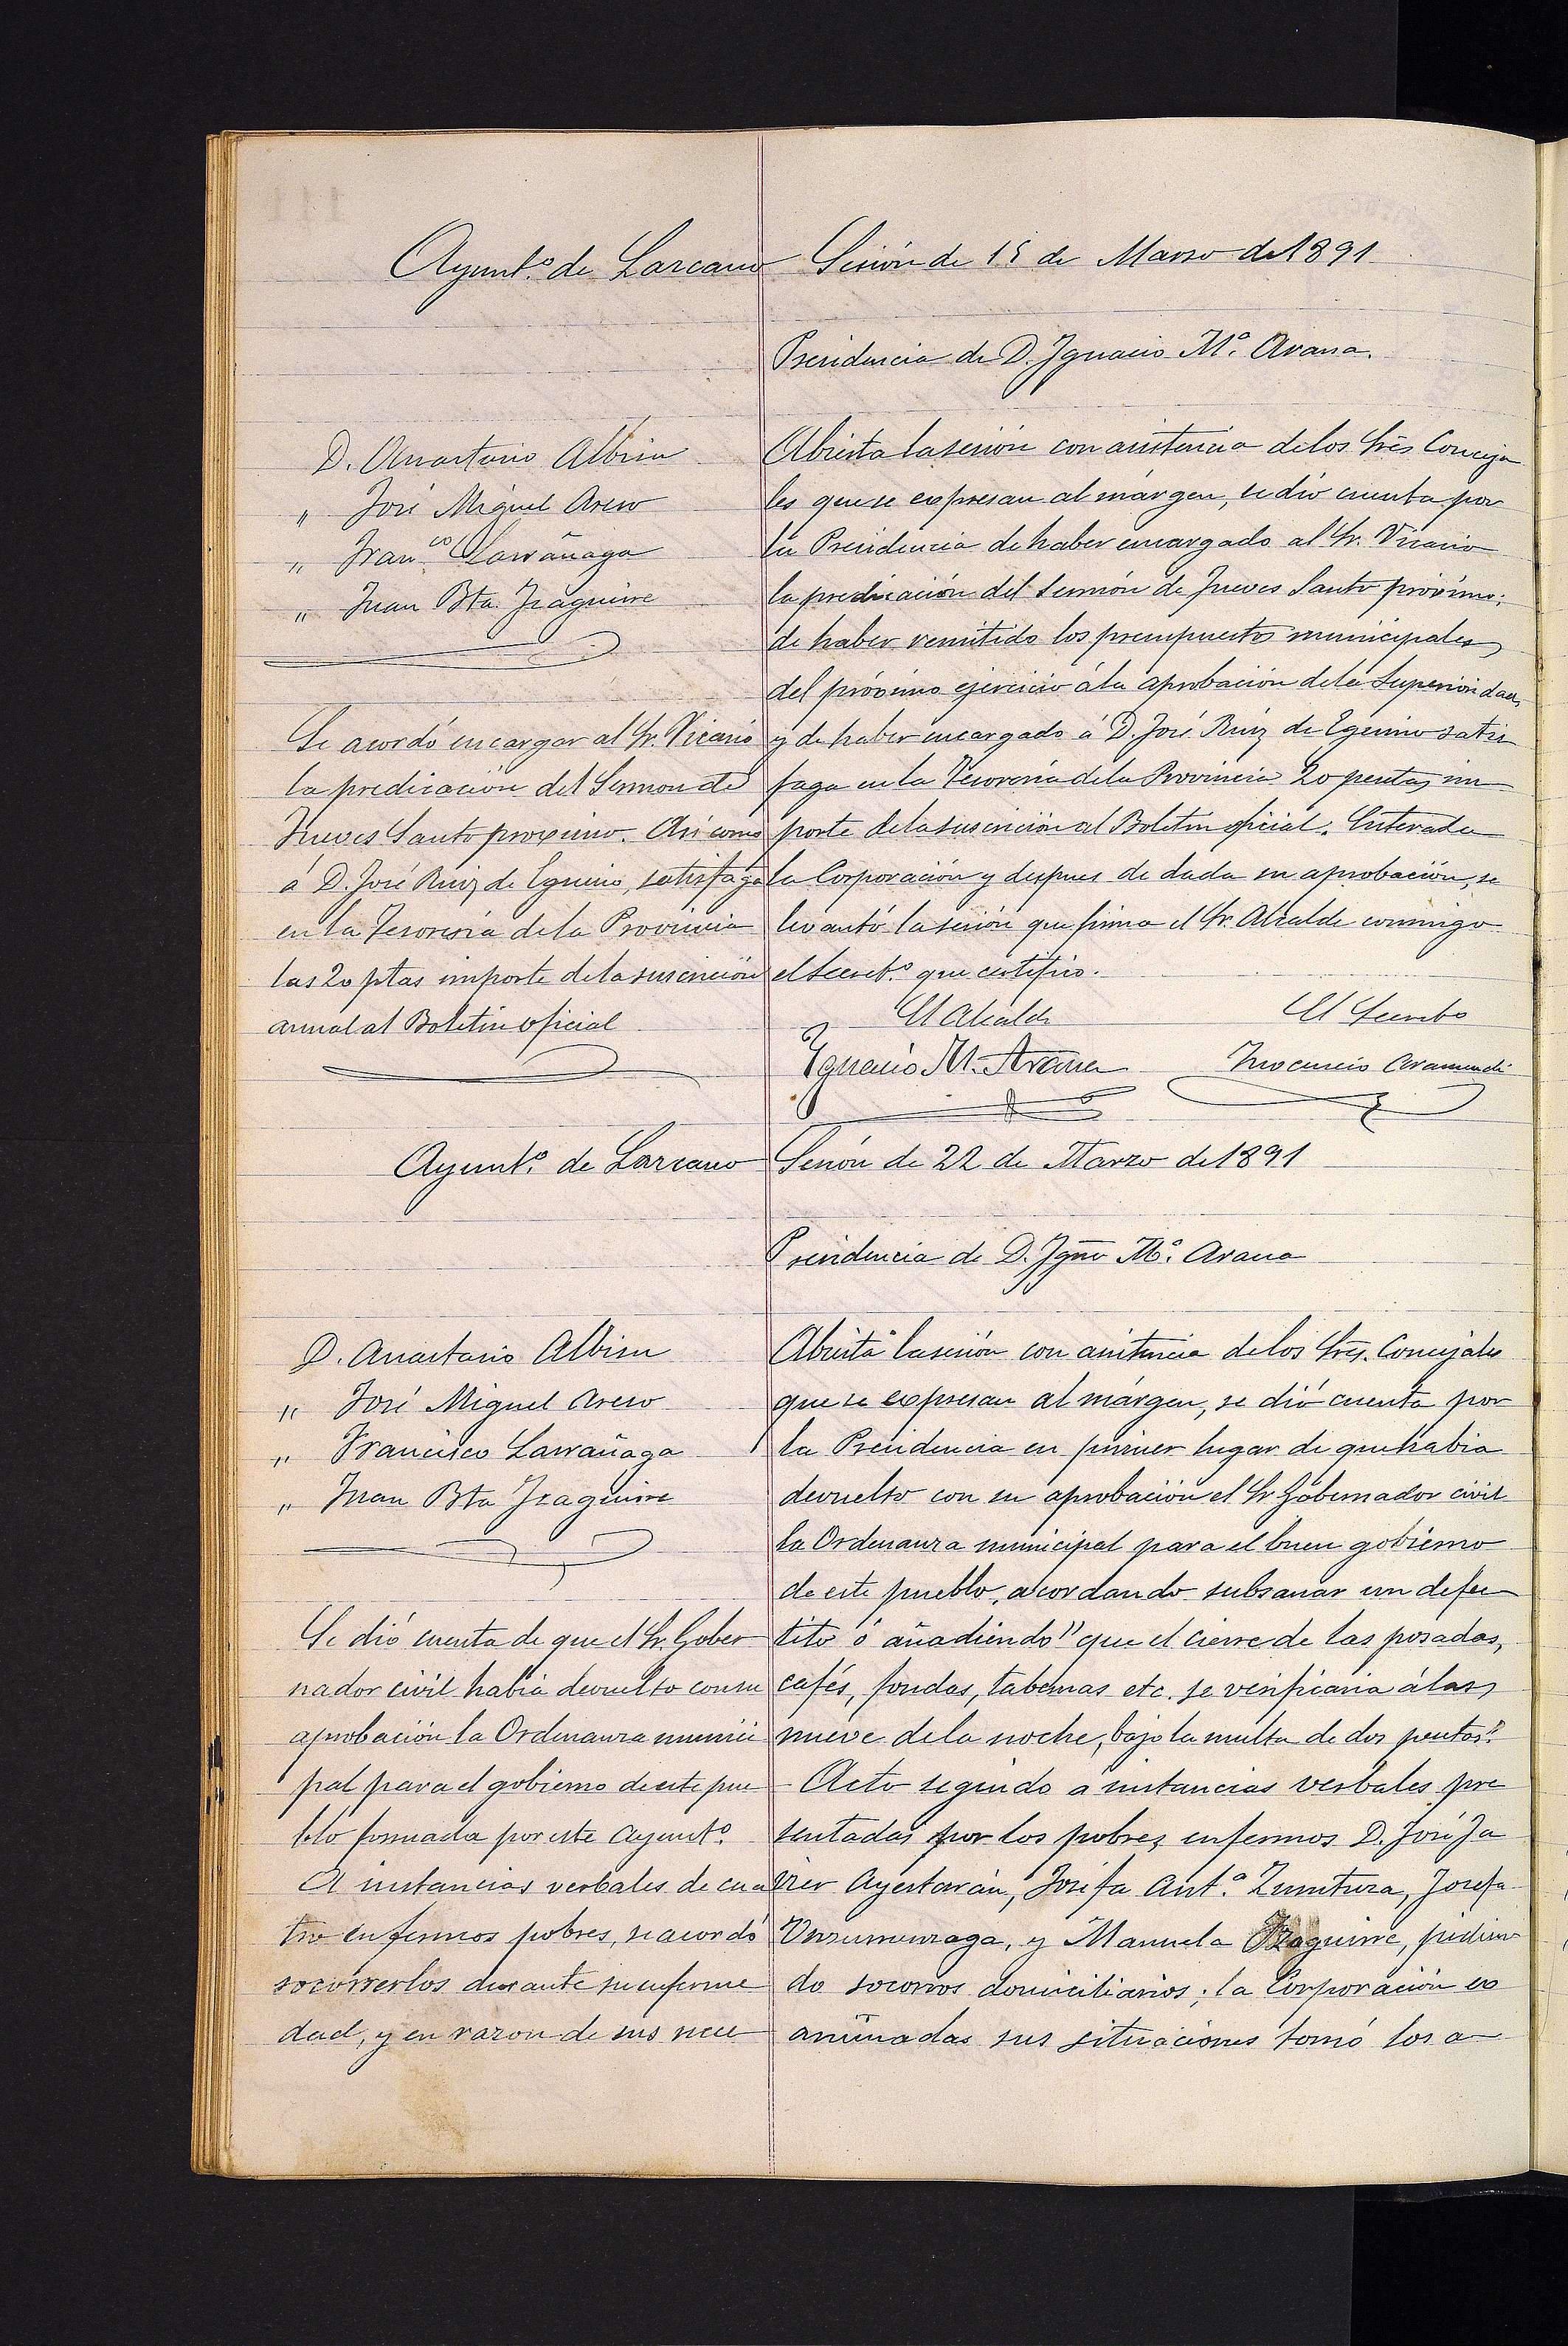 Ayunt.º de Lazcano Sesión de 15 de Marzo de 1891
Presidencia de D. Ygnacio M.ª Arana.
D. Anastasio Albisu
" José Miguel Areso
" Fran.co Larrañaga
" Juan Bta. Yzaguirre
Se acordó encargar al Sr. Vicario
la predicación del Sermon de
Jueves Santo proximo. Asi como
á D. José Ruiz de Eguino, satisfaga
en la Tesorería de la Provincia
las 20 ptas importe de la suscrición
annal al Boletin oficial
Abierta la sesión con asistencia de los Srēs Conceja
les que se expresan al márgen, se dió cuenta por
la Presidencia de haber encargado al Sr. Vicario
la predicación del Sermón de Jueves Santo próximo;
de haber remitido los presupuestos municipales
del próximo ejercicio á la aprobación de la Superioridad,
y de haber encargado á D. José Ruiz de Eguino satis
faga en la Tesorería de la Provincia 20 pesetas im
porte de la suscrición al Boletin oficial. Enterada
la Corporación y despues de dada su aprobación, se
levantó la sesión que firma el Sr. Alcalde conmigo
el Secret.º que certifico.
El Alcalde El Secreto
Ygnacio M. Arana Ynocencio Aramendi
Ayunt.º de Lazcano Sesión de 22 de Marzo de 1891
Presidencia de D. Ygño M.ª Arana
D. Anastasio Albisu
" José Miguel Areso
" Francisco Larrañaga
" Juan Bta Yzaguirre
Se dió cuenta de que el Sr. Gober
nador civil habia devuelto con su
aprobación la Ordenanza munici
pal para el gobierno de este pue
blo formada por este Ayunt.º
A instancias verbales de cua
tro enfermos pobres, se acordó
socorrerlos durante su enferme
dad, y en razon de sus nece
Abierta la sesión con asistencia de los Srēs. Concejales
que se expresan al márgen, se dió cuenta por
la Presidencia en primer lugar de que habia
devuelto con su aprobación el Sr Gobernador civil
la Ordenanza municipal para el buen gobierno
de este pueblo, acordando subsanar un defec
tito ó añadiendo "que el cierre de las posadas,
cafés, fondas, tabernas etc. se verificaria á las
nueve de la noche, bajo la multa de dos pesetas".
Acto seguido a instancias verbales pre
sentadas por los pobres enfermos D. José Ja
vier Ayestarán, Josefa Ant.ª Zurutuza, Josefa
Unsurrunzaga, y Manuela Yzaguirre, pidien
do socorros domiciliarios; la Corporación ex
aminadas sus situaciones tomó los a